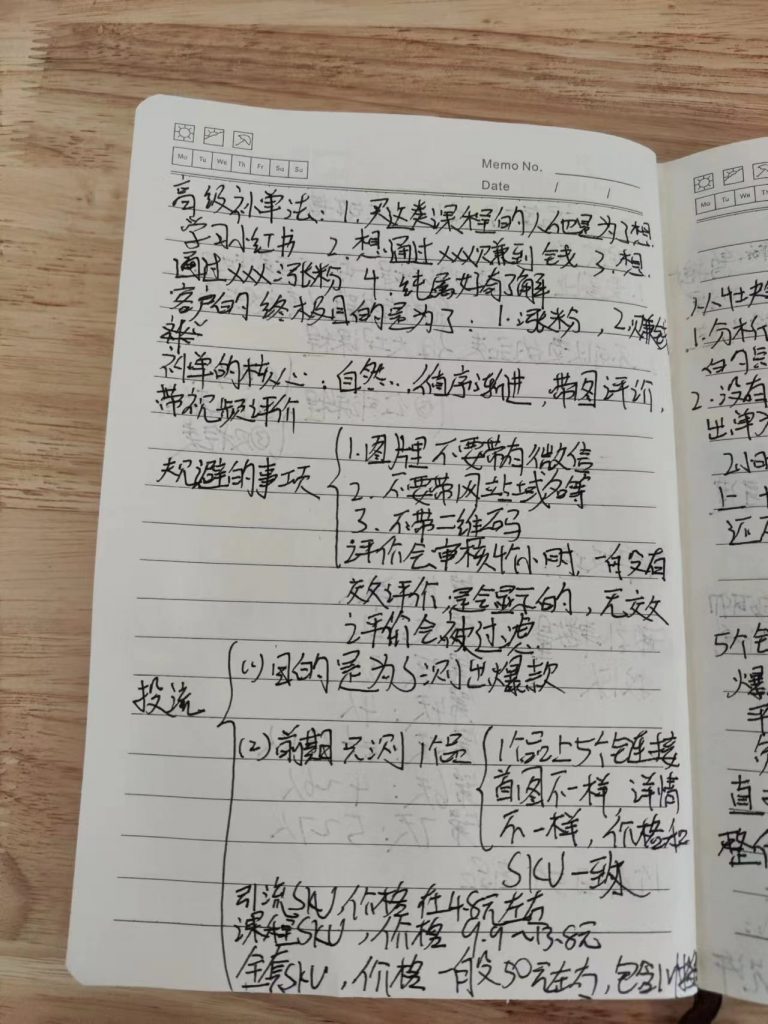 Mo Tu We Th Fr Sa Su
Memo No.
Date / /
高级补单法：1. 买这类课程的人他是为了想
学习小红书 2. 想通过XXX赚到钱 3. 想
通过XXX涨粉 4. 纯属好奇了解
客户的终极目的是为了：1. 涨粉，2. 赚钱
补单的核心：自然，循序渐进，带图评价，
带视频评价
规避的事项
1. 图片里不要带有微信
2. 不要带网站域名等
3. 不带二维码
评价会审核4个小时，一般没有
效评价，是会显示的，无效
评价会被过滤
投流
(1) 目的是为了测出爆款
(2) 前期只测1个品
1个品上5个链接
首图不一样 详情
不一样，价格和
SKU一致
引流SKU，价格在4.8元左右
课程SKU，价格9.9~13.8元
全套SKU，价格一般50元左右，包含
Mo Tu We Th
1. 分析
2. 没有
出单
5个
爆
平
直
整个